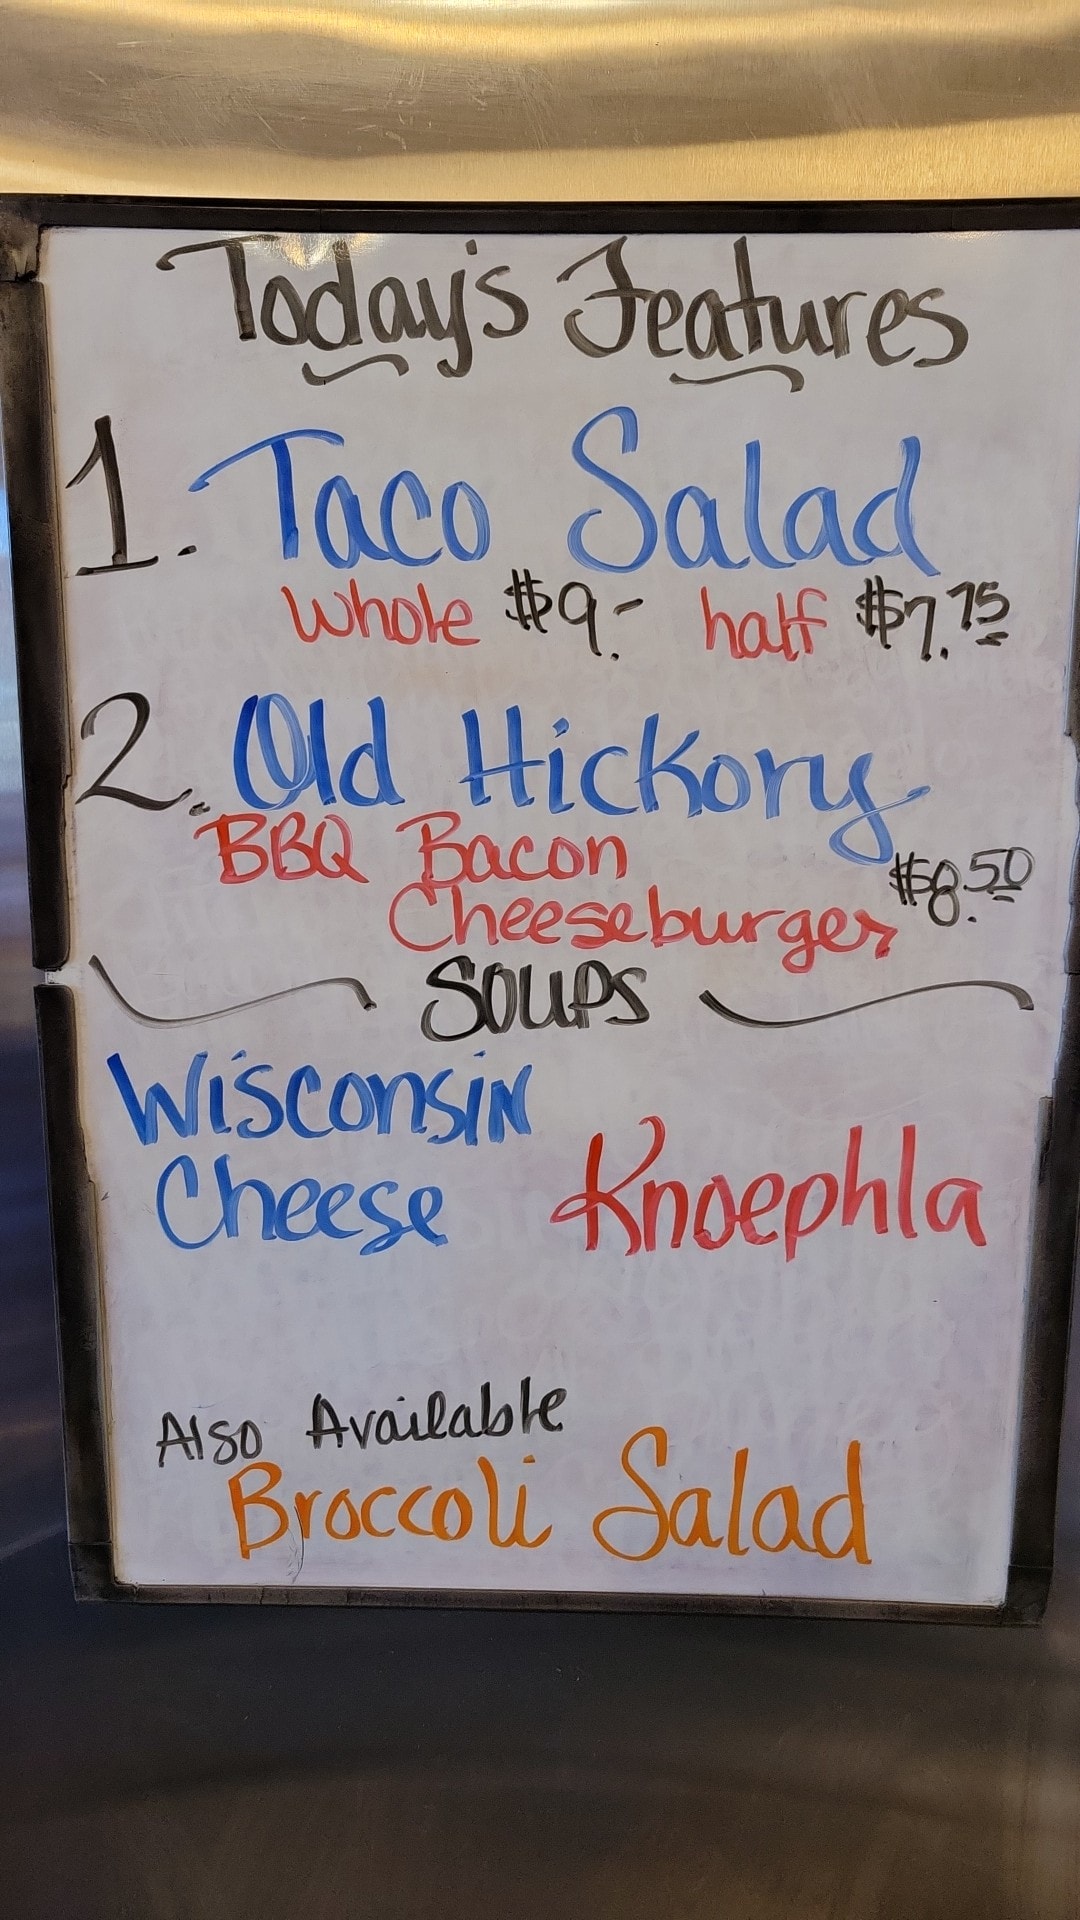 Today's Features
1. Taco Salad
whole $9.- half $7.75
2. Old Hickory
BBQ Bacon
Cheeseburger $8.50
SOUPS
Wisconsin
Cheese
Knoephla
Also Available
Broccoli Salad